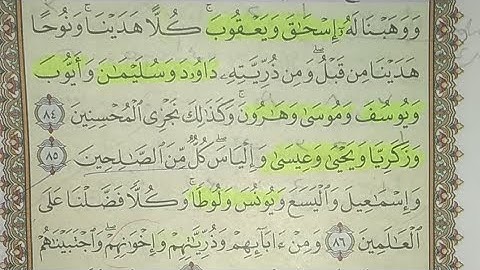 وَوَهَبْنَا لَهُۥٓ إِسْحَٰقَ وَيَعْقُوبَ ۚ كُلًّا هَدَيْنَا ۚ وَنُوحًا
هَدَيْنَا مِن قَبْلُ ۖ وَمِن ذُرِّيَّتِهِۦ دَاوُۥدَ وَسُلَيْمَٰنَ وَأَيُّوبَ
وَيُوسُفَ وَمُوسَىٰ وَهَٰرُونَ ۚ وَكَذَٰلِكَ نَجْزِى ٱلْمُحْسِنِينَ ٨٤
وَزَكَرِيَّا وَيَحْيَىٰ وَعِيسَىٰ وَإِلْيَاسَ ۖ كُلٌّ مِّنَ ٱلصَّٰلِحِينَ ٨٥
وَإِسْمَٰعِيلَ وَٱلْيَسَعَ وَيُونُسَ وَلُوطًا ۚ وَكُلًّا فَضَّلْنَا عَلَى
ٱلْعَٰلَمِينَ ٨٦ وَمِنْ ءَابَآئِهِمْ وَذُرِّيَّٰتِهِمْ وَإِخْوَٰنِهِمْ ۖ وَٱجْتَبَيْنَٰهُمْ